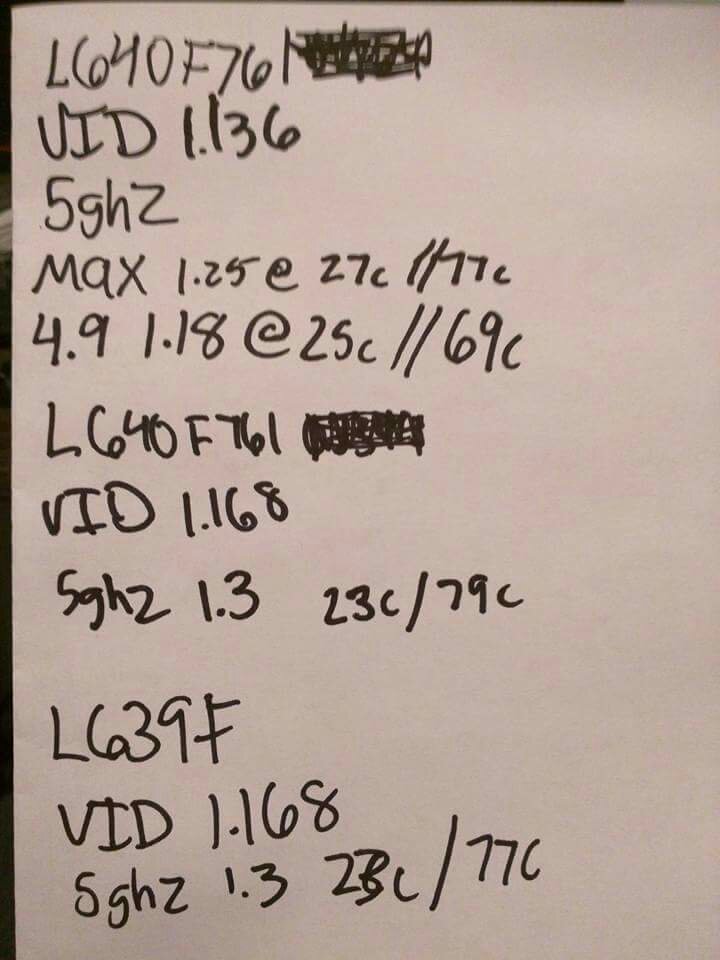 L640F761
VID 1.136
5ghz
MAX 1.25 @ 27c //77c
4.9 1.18 @ 25c //69c
L640F761
VID 1.168
5ghz 1.3 23c/79c
L639F
VID 1.168
5ghz 1.3 23c/77c